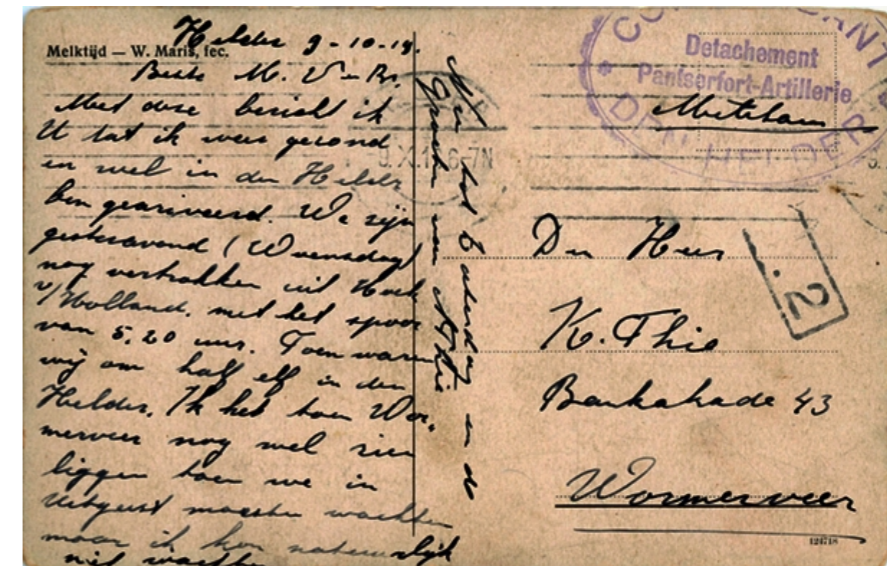 Melktijd — W. Maris, fec.
Helder 9-10-19.
Beste M. V en Br.
Met deze bericht ik
U dat ik weer gezond
en wel in den Helder
ben gearriveerd. We zijn
gisteravond (Woensdag)
nog vertrokken uit Hoek
v/Holland. met het spoor
van 5.20 uur. Toen waren
wij om half elf in den
Helder. Ik heb toen Wor-
merveer nog wel zien
liggen toen we in
Uitgeest moesten wachten
maar ik kon natuurlijk
niet wachten
Nu tot Zaterdag en de
Groeten van
COMMANDANT
Detachement
Pantserfort-Artillerie
DEN HELDER
9.X.1 6-7N
Den Heer
K. Thie
Bankakade 43
Wormerveer
.2
124718